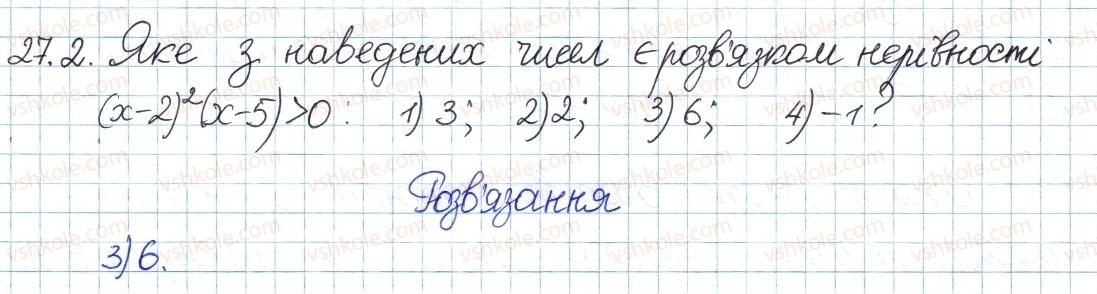 27.2. Яке з наведених чисел є розв'язком нерівності
(x-2)²(x-5)>0: 1) 3; 2) 2; 3) 6; 4) -1?
Розв'язання
3) 6.